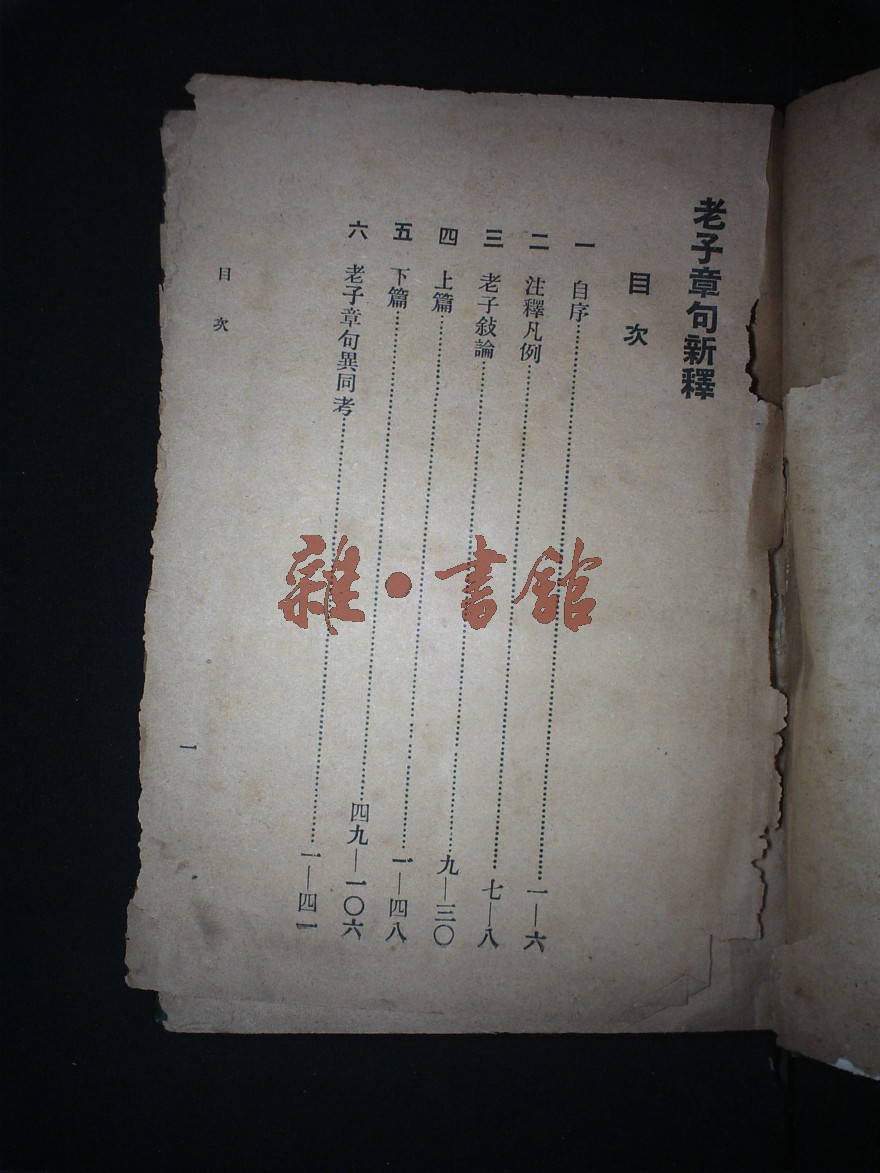 老子章句新釋
目次
一 自序……一—六
二 注釋凡例……七—八
三 老子敍論……九—三〇
四 上篇……一—四八
五 下篇……四九—一〇六
六 老子章句異同考……一—四一
目次
一
雜·書館